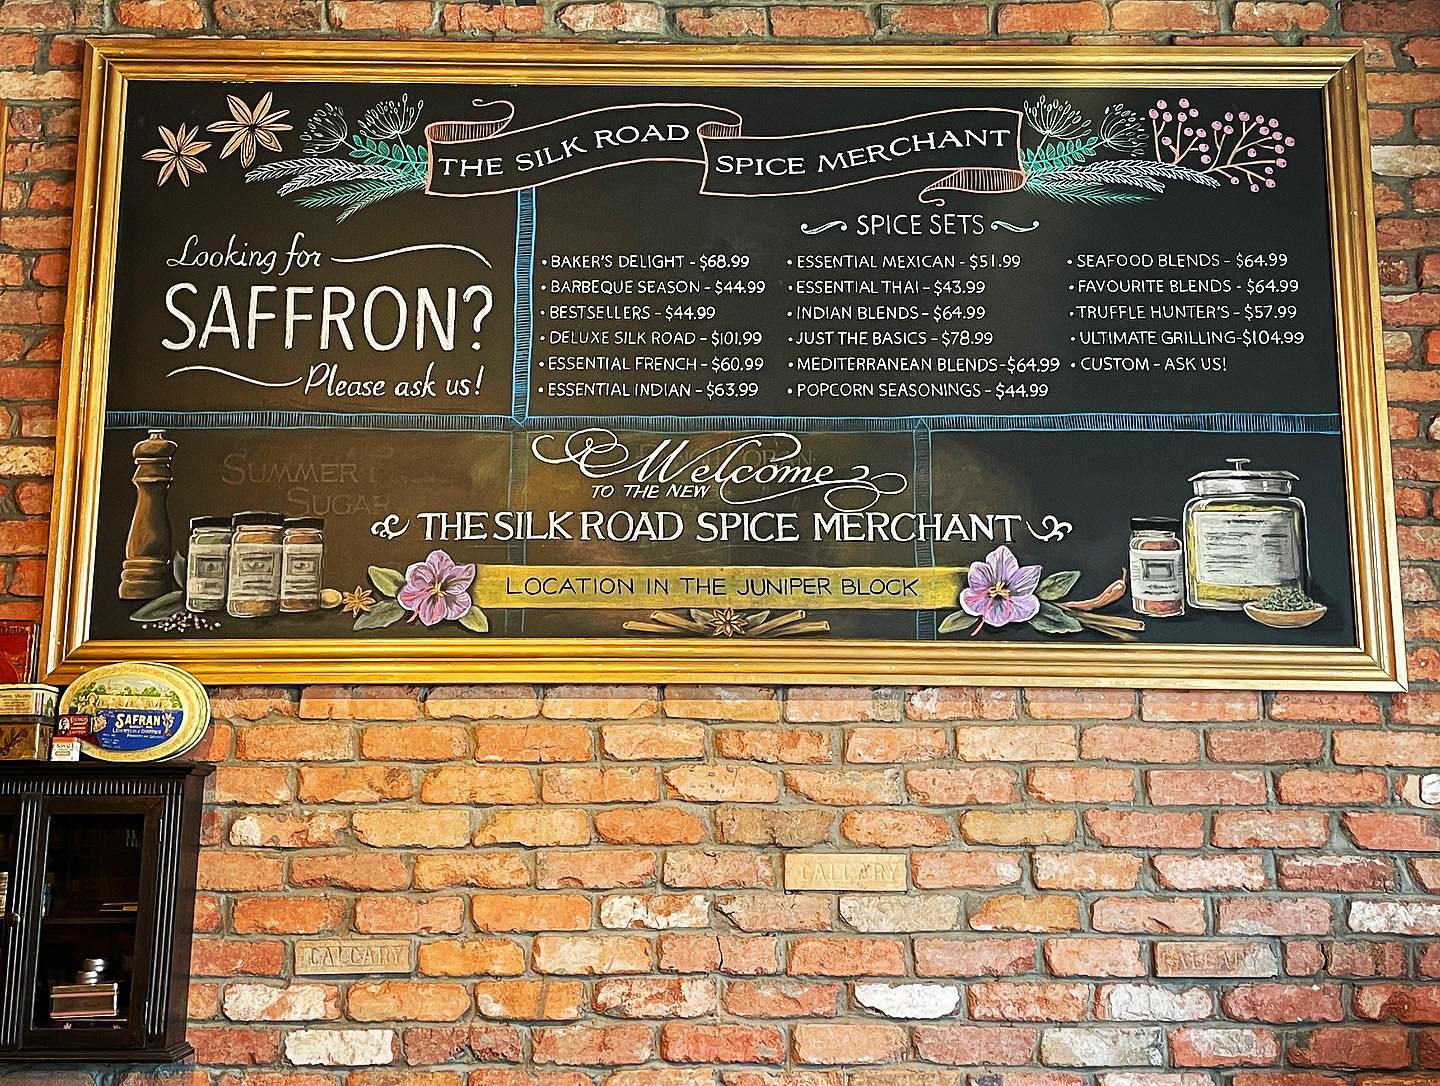 THE SILK ROAD SPICE MERCHANT
Looking for
SAFFRON?
Please ask us!
SPICE SETS
• BAKER'S DELIGHT - $68.99
• BARBEQUE SEASON - $44.99
• BESTSELLERS - $44.99
• DELUXE SILK ROAD - $101.99
• ESSENTIAL FRENCH - $60.99
• ESSENTIAL INDIAN - $63.99
• ESSENTIAL MEXICAN - $51.99
• ESSENTIAL THAI - $43.99
• INDIAN BLENDS - $64.99
• JUST THE BASICS - $78.99
• MEDITERRANEAN BLENDS - $64.99
• POPCORN SEASONINGS - $44.99
• SEAFOOD BLENDS - $64.99
• FAVOURITE BLENDS - $64.99
• TRUFFLE HUNTER'S - $57.99
• ULTIMATE GRILLING - $104.99
• CUSTOM - ASK US!
SUMMER
SUGAR
Welcome
TO THE NEW
THE SILK ROAD SPICE MERCHANT
LOCATION IN THE JUNIPER BLOCK
SAFRAN
CALGARY
CALGARY
CALGARY